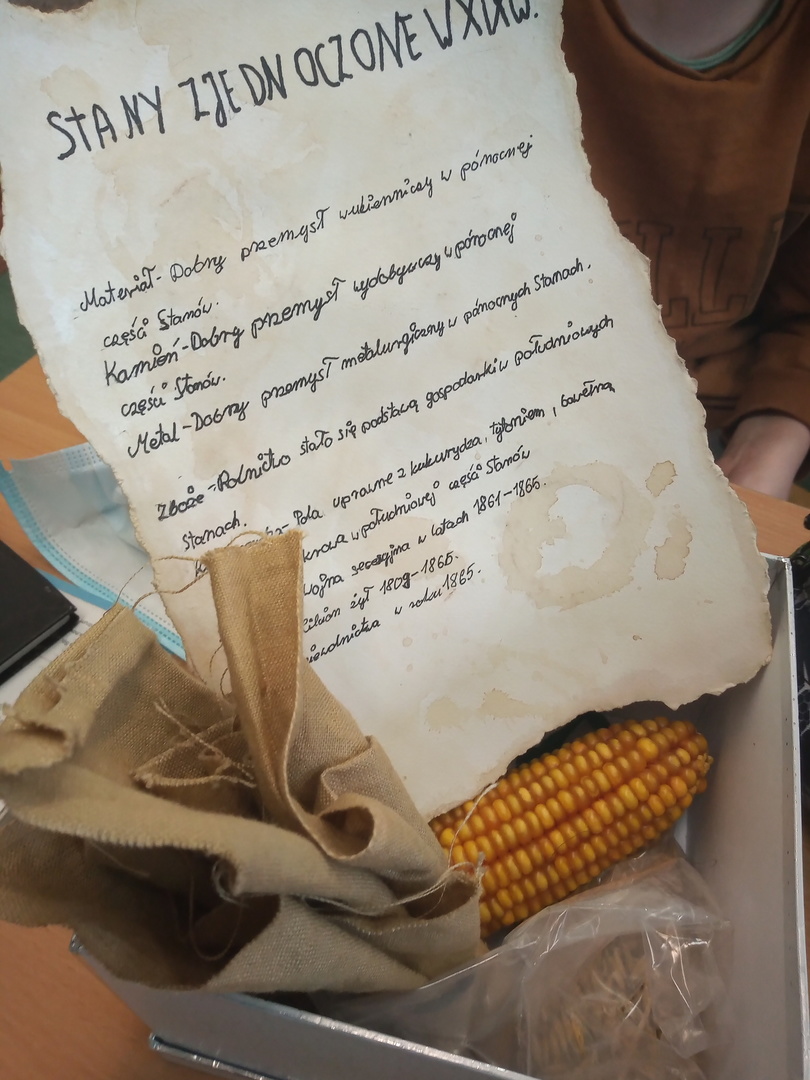 STANY ZJEDNOCZONE W XIX W.
Materiał - Dobry przemysł wukienniczy w pónocnej
części Stanów.
Kamień - Dobry przemysł wydobywczy w pónocnej
części Stanów.
Metal - Dobrzy przemysł metalurgiczny w pónocnych Stanach.
Zboże - Rolnictwo stało się podstawą gospodarki w południowych
Stanach.
Pola uprawne z kukurydza, tytoniem, bawełną
w południowej część Stanów
wojna secesyjna w latach 1861-1865.
żył 1809-1865.
w roku 1865.
LL